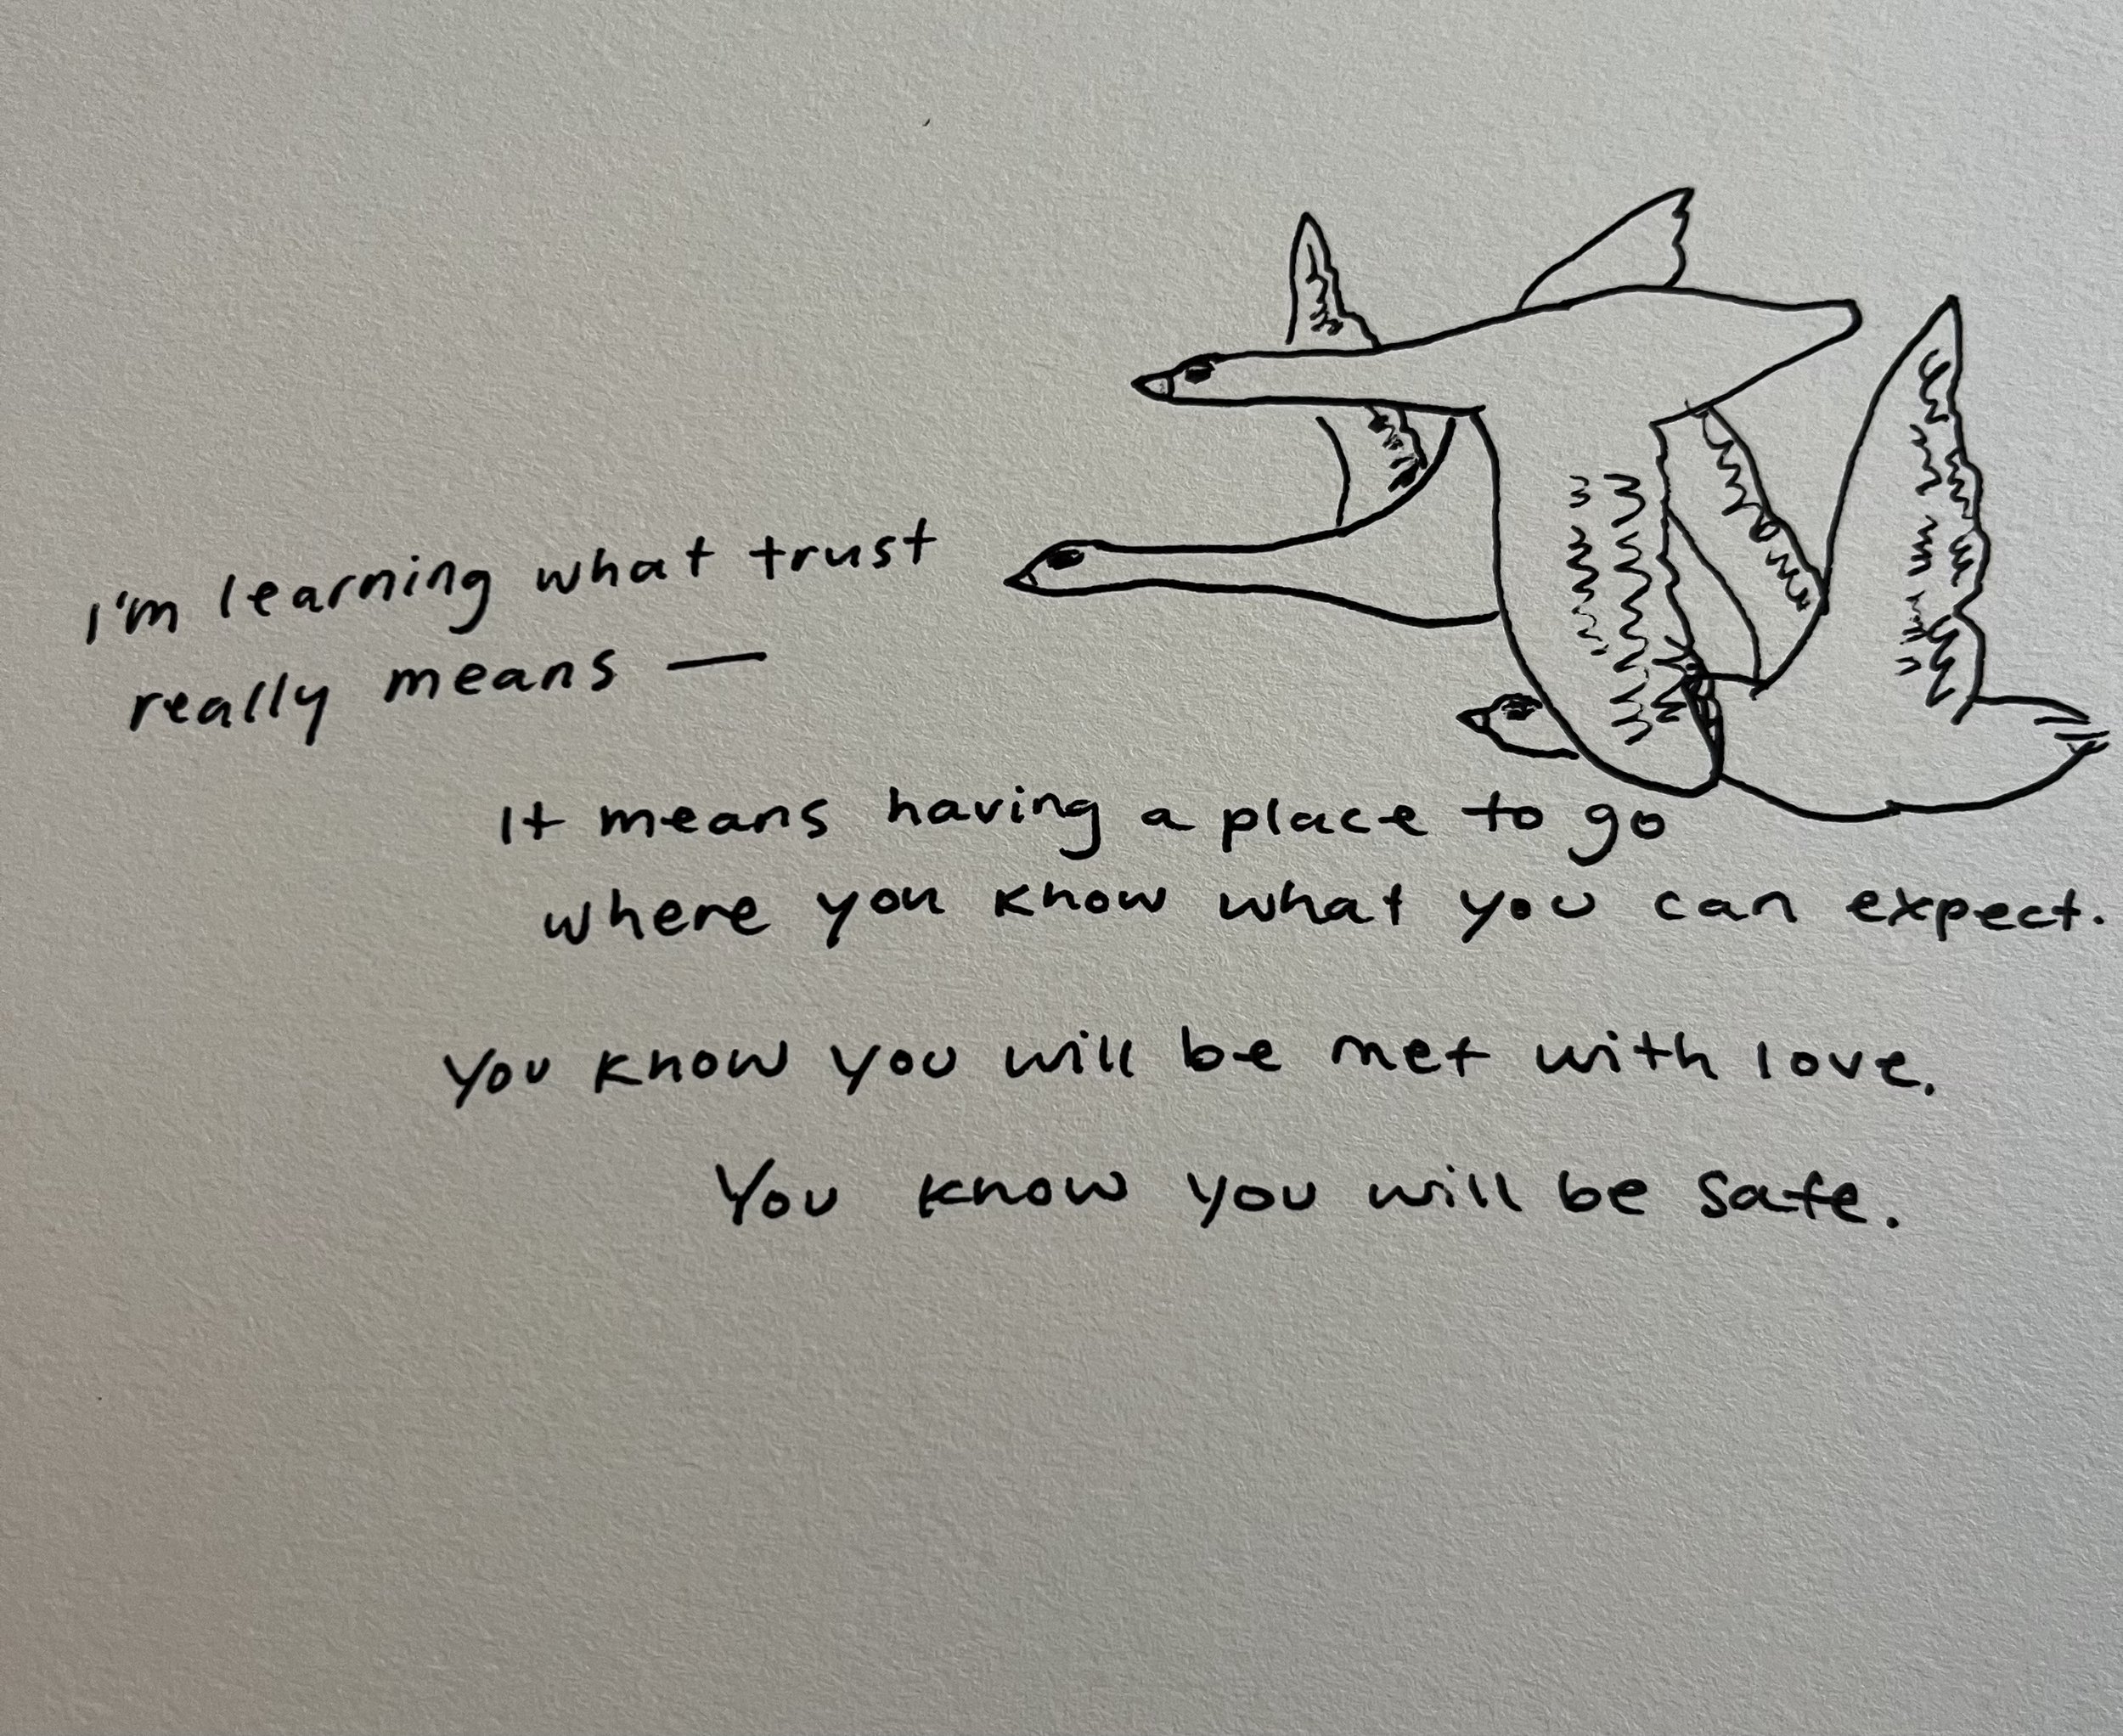 I'm learning what trust
really means —
It means having a place to go
where you know what you can expect.
You know you will be met with love.
You know you will be safe.